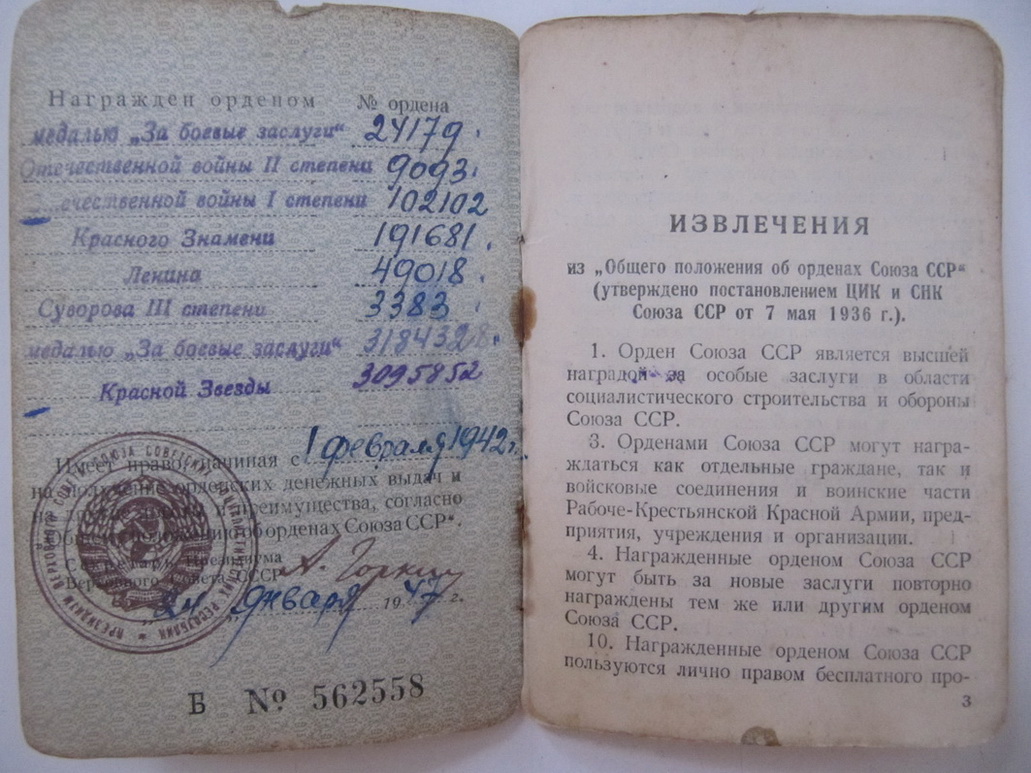 Награжден орденом № ордена
медалью „За боевые заслуги“ 24179.
Отечественной войны II степени 9093.
Отечественной войны I степени 102102
Красного Знамени 191681.
Ленина 49018.
Суворова III степени 3383
медалью „За боевые заслуги“ 3184328.
Красной Звезды 3095852
Имеет право начиная с 1 февраля 1942 г.
на получение орденских денежных выдач и
на льготы и преимущества, согласно
„Общему положению об орденах Союза ССР“.
Секретарь Президиума
Верховного Совета СССР А. Горкин
„24“ января 1947 г.
Б № 562558
ИЗВЛЕЧЕНИЯ
из „Общего положения об орденах Союза ССР“
(утверждено постановлением ЦИК и СНК
Союза ССР от 7 мая 1936 г.).
1. Орден Союза ССР является высшей
наградой за особые заслуги в области
социалистического строительства и обороны
Союза ССР.
3. Орденами Союза ССР могут награ-
ждаться как отдельные граждане, так и
войсковые соединения и воинские части
Рабоче-Крестьянской Красной Армии, пред-
приятия, учреждения и организации.
4. Награжденные орденом Союза ССР
могут быть за новые заслуги повторно
награждены тем же или другим орденом
Союза ССР.
10. Награжденные орденом Союза ССР
пользуются лично правом бесплатного про-
3